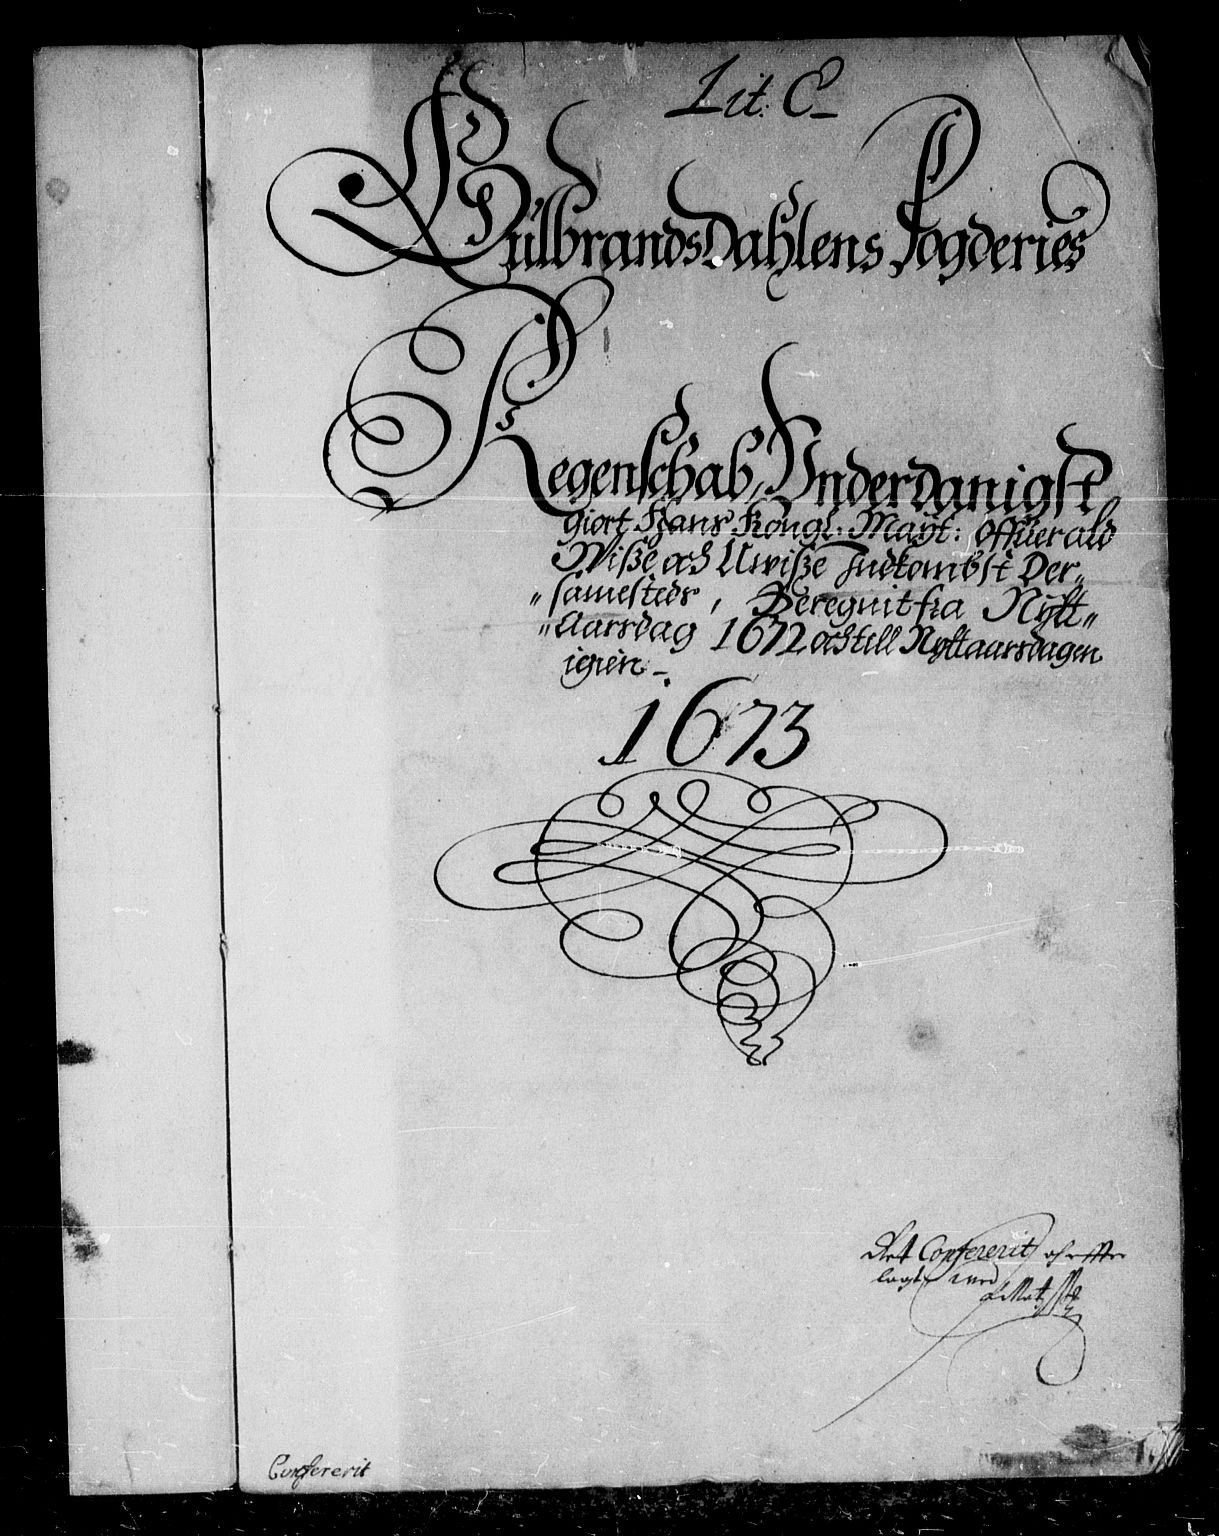 Lit: C
GulbrandsDahlens Fogderies
Regenschab, Underdanigst
giort Hans Kongl: Mayt: offuer ald
Wiße och Uwiße Indkombst Der„
„samesteds, Beregnit fra Nytt„
„Aarsdag 1672 och till Nyttaarsdagen
igien.
1673
Confererit
lagt med
Confererit